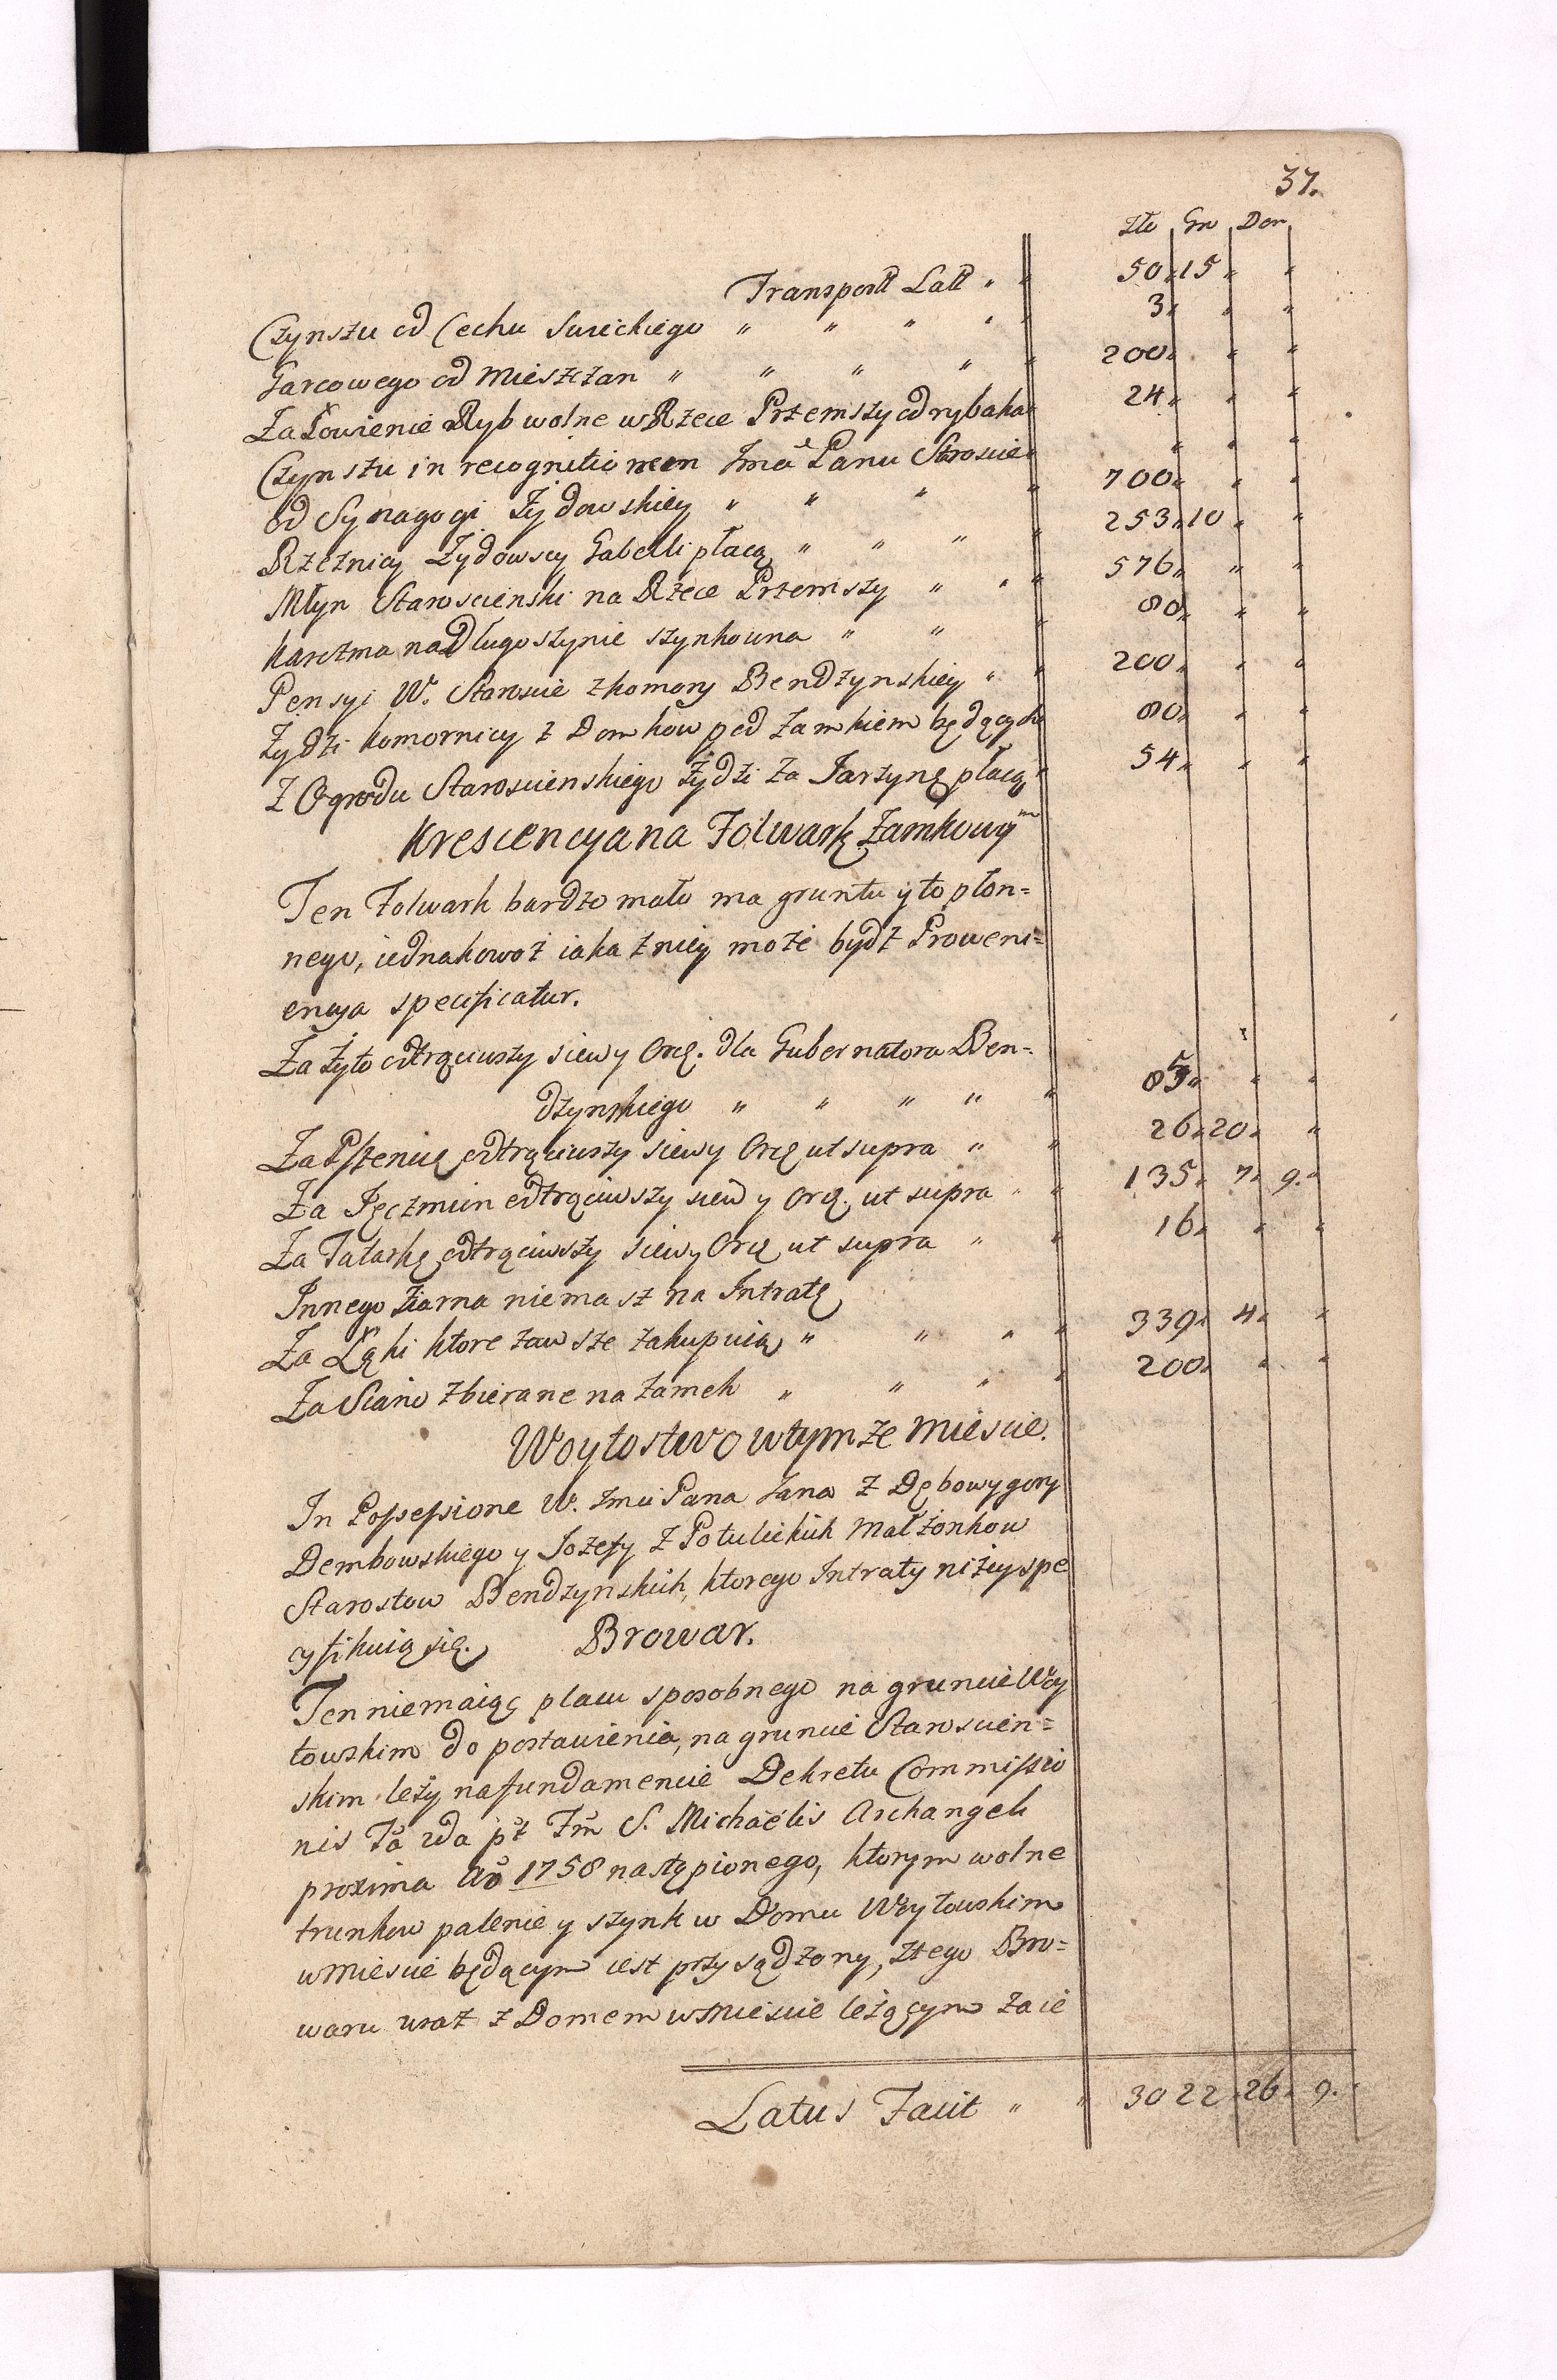 37.
Złł Gr Den
Transport Latt " " 50 " 15 " "
Czynszu od Cechu Sweickiego " " " " " 3 " " "
Garcowego od Mieszczan " " " " " 200 " " "
Za Łowienie Ryb wolne w Rzece Przemszy od rybaka " 24 " " "
Czynszu in recognitionem Jmć Panu Staroscie " " " "
od Synagogi Żydowskiey " " " " 700 " " "
Rzeznicy Żydowscy Gabelli płacą " " " " 253 " 10 " "
Młyn Staroscienski na Rzece Przemszy " " " 576 " " "
Karczma na Długoszynie szynkowna " " " 80 " " "
Pensyi W. Staroscie z komory Bendzynskiey " " 200 " " "
Żydzi komornicy z Domkow pod Zamkiem będących 80 " " "
Z Ogrodu Staroscienskiego Żydzi za Jarzynę płacą " 54 " " "
Krescencya na Folwark Zamkowym
Ten Folwark bardzo mało ma gruntu y to płon=
nego, iednakowoż iaka z niey może bydz Proweni=
encya specificatur.
Za Żyto odtrąciwszy siew y Ord. dla Gubernatora Ben=
dzynskiego " " " " " 85 " " "
Za Pszenicę odtrąciwszy siew y Ord. ut supra " " 26 " 20 " "
Za Jęczmien odtrąciwszy siew y Ord. ut supra " " 135 " 7 " 9. "
Za Tatarkę odtrąciwszy siew y Ord. ut supra " " 16 " " "
Innego Ziarna niemasz na Intratę
Za Łąki ktore zawsze zakupuią " " " " 339 " 4 " "
Za Siano zbierane na Zamek " " " " 200 " " "
Woytostwo w tymze Miescie.
In Possessione W. Jmci Pana Jana z Dębowygory
Dembowskiego y Jozefy z Potulickich Małżonkow
Starostow Bendzynskich, ktorego Intraty niżey spe
cyfikuią się. Browar.
Ten niemaiąc placu sposobnego na gruncie Woy
towskim do postawienia, na gruncie Staroscien=
skim leży na fundamencie Dekretu Commissio
nis Fer. 2da pt Fm S. Michaëlis Archangeli
proxima Ao 1758 nastąpionego, ktorym wolne
trunkow palenie y szynk w Domu Woytowskim
w Miescie będącym iest przysądzony, z tego Bro=
waru wraz z Domem w Miescie leżącym za ie
Latus Facit " " 3022 " 26 " 9. "